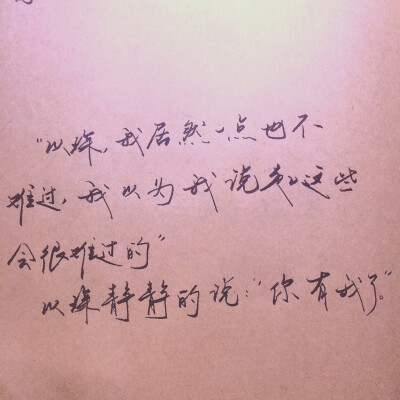 “以琛,我居然一点也不
难过,我以为我说起这些
会很难过的”
以琛静静的说:“你有我了。”